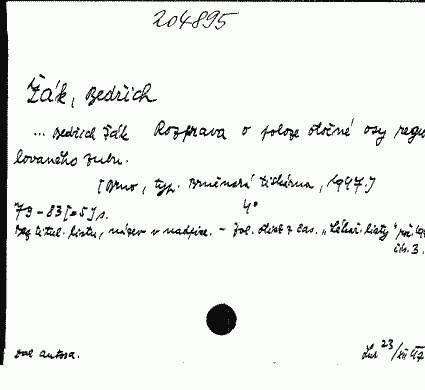 204895
Žák, Bedřich
... Bedřich Žák Rozprava o poloze otočné osy regu
lovaného zubu.
[Brno, typ. Brněnská tiskárna, 1947.]
79-83 [=5] s. 4°
Bez titul. listu, název v nadpise. - Zvl. otisk z čas. "Lékař. listy"
čís. 3.
dal autora.
23/XII 47